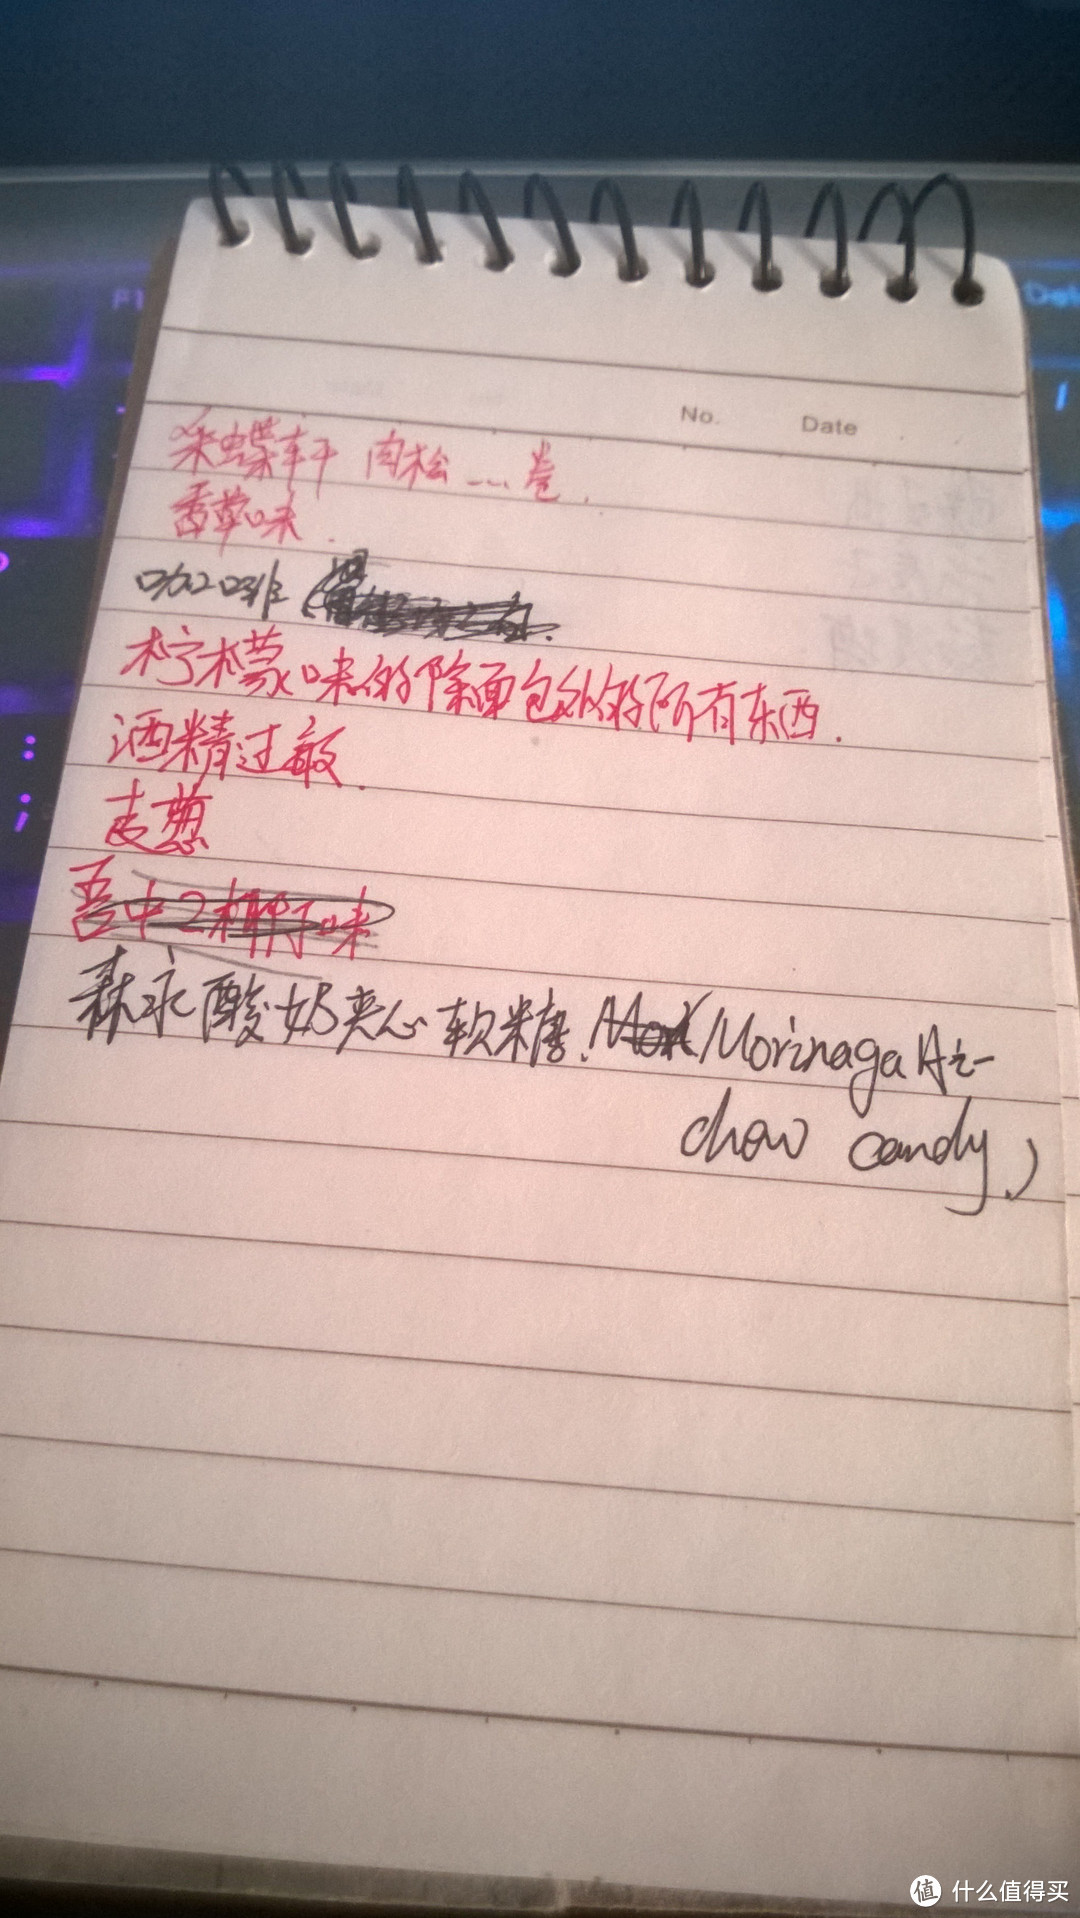 No. Date
采蝶轩 肉松 ... 卷.
香草味.
咖啡
柠檬味的除面包外的所有东西.
酒精过敏.
吾中2椰子味
森永酸奶夹心软糖. (Morinaga Hi-
chew candy.)
值 什么值得买